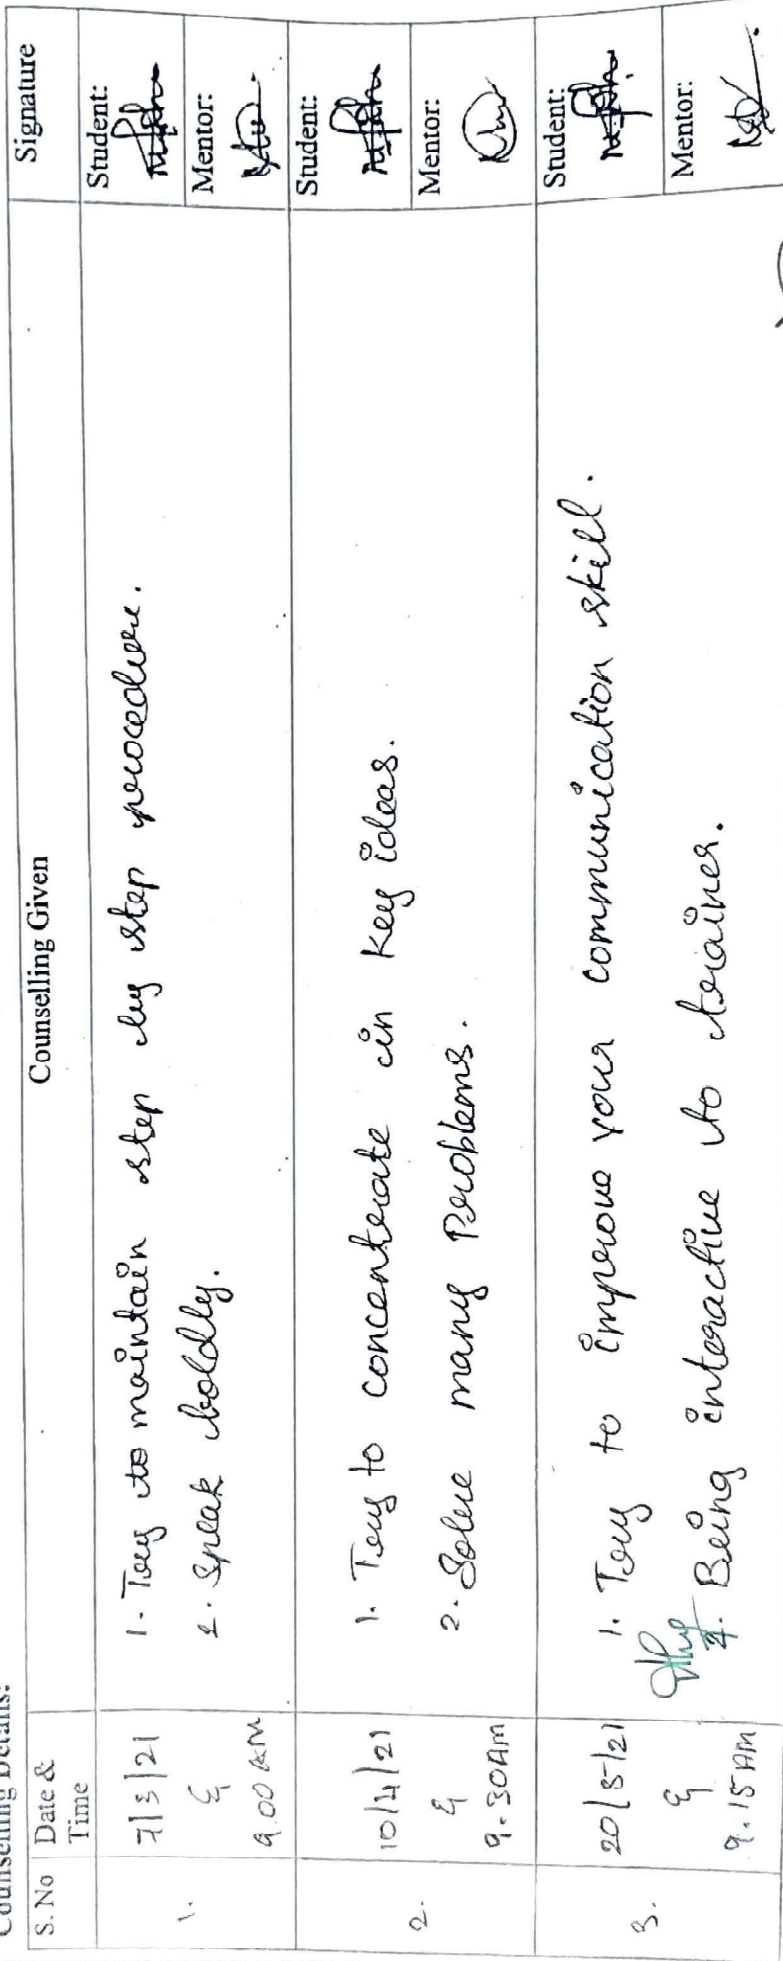 Counselling Details:
S. No
Date &
Time
Counselling Given
Signature
1.
7/3/21
&
9.00 AM
1. Try to maintain step by step procedure.
2. Speak boldly.
Student:
Mentor:
2.
10/4/21
&
9.30AM
1. Try to concentrate in key ideas.
2. Solve many Problems.
Student:
Mentor:
3.
20/5/21
&
9.15 AM
1. Try to improve your communication skill.
2. Being interactive to trainer.
Student:
Mentor: